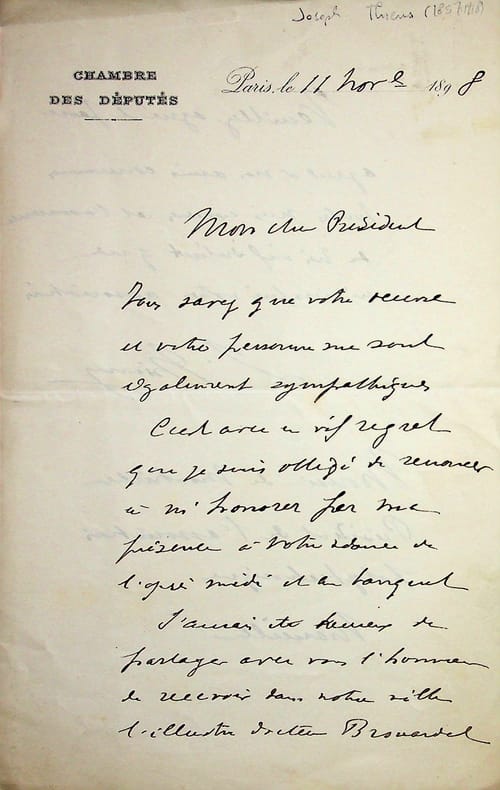 Joseph Thierry (1857-1918)
CHAMBRE
DES DÉPUTÉS
Paris, le 11 Nov e 1898
Mon cher Président
Vous savez que votre oeuvre
et votre personne me sont
également sympathiques
C'est avec un vif regret
que je suis obligé de renoncer
à m'honorer par ma
présence à votre séance de
l'après midi et au banquet
J'aurais été heureux de
partager avec vous l'honneur
de recevoir dans notre ville
l'illustre docteur Brouardel